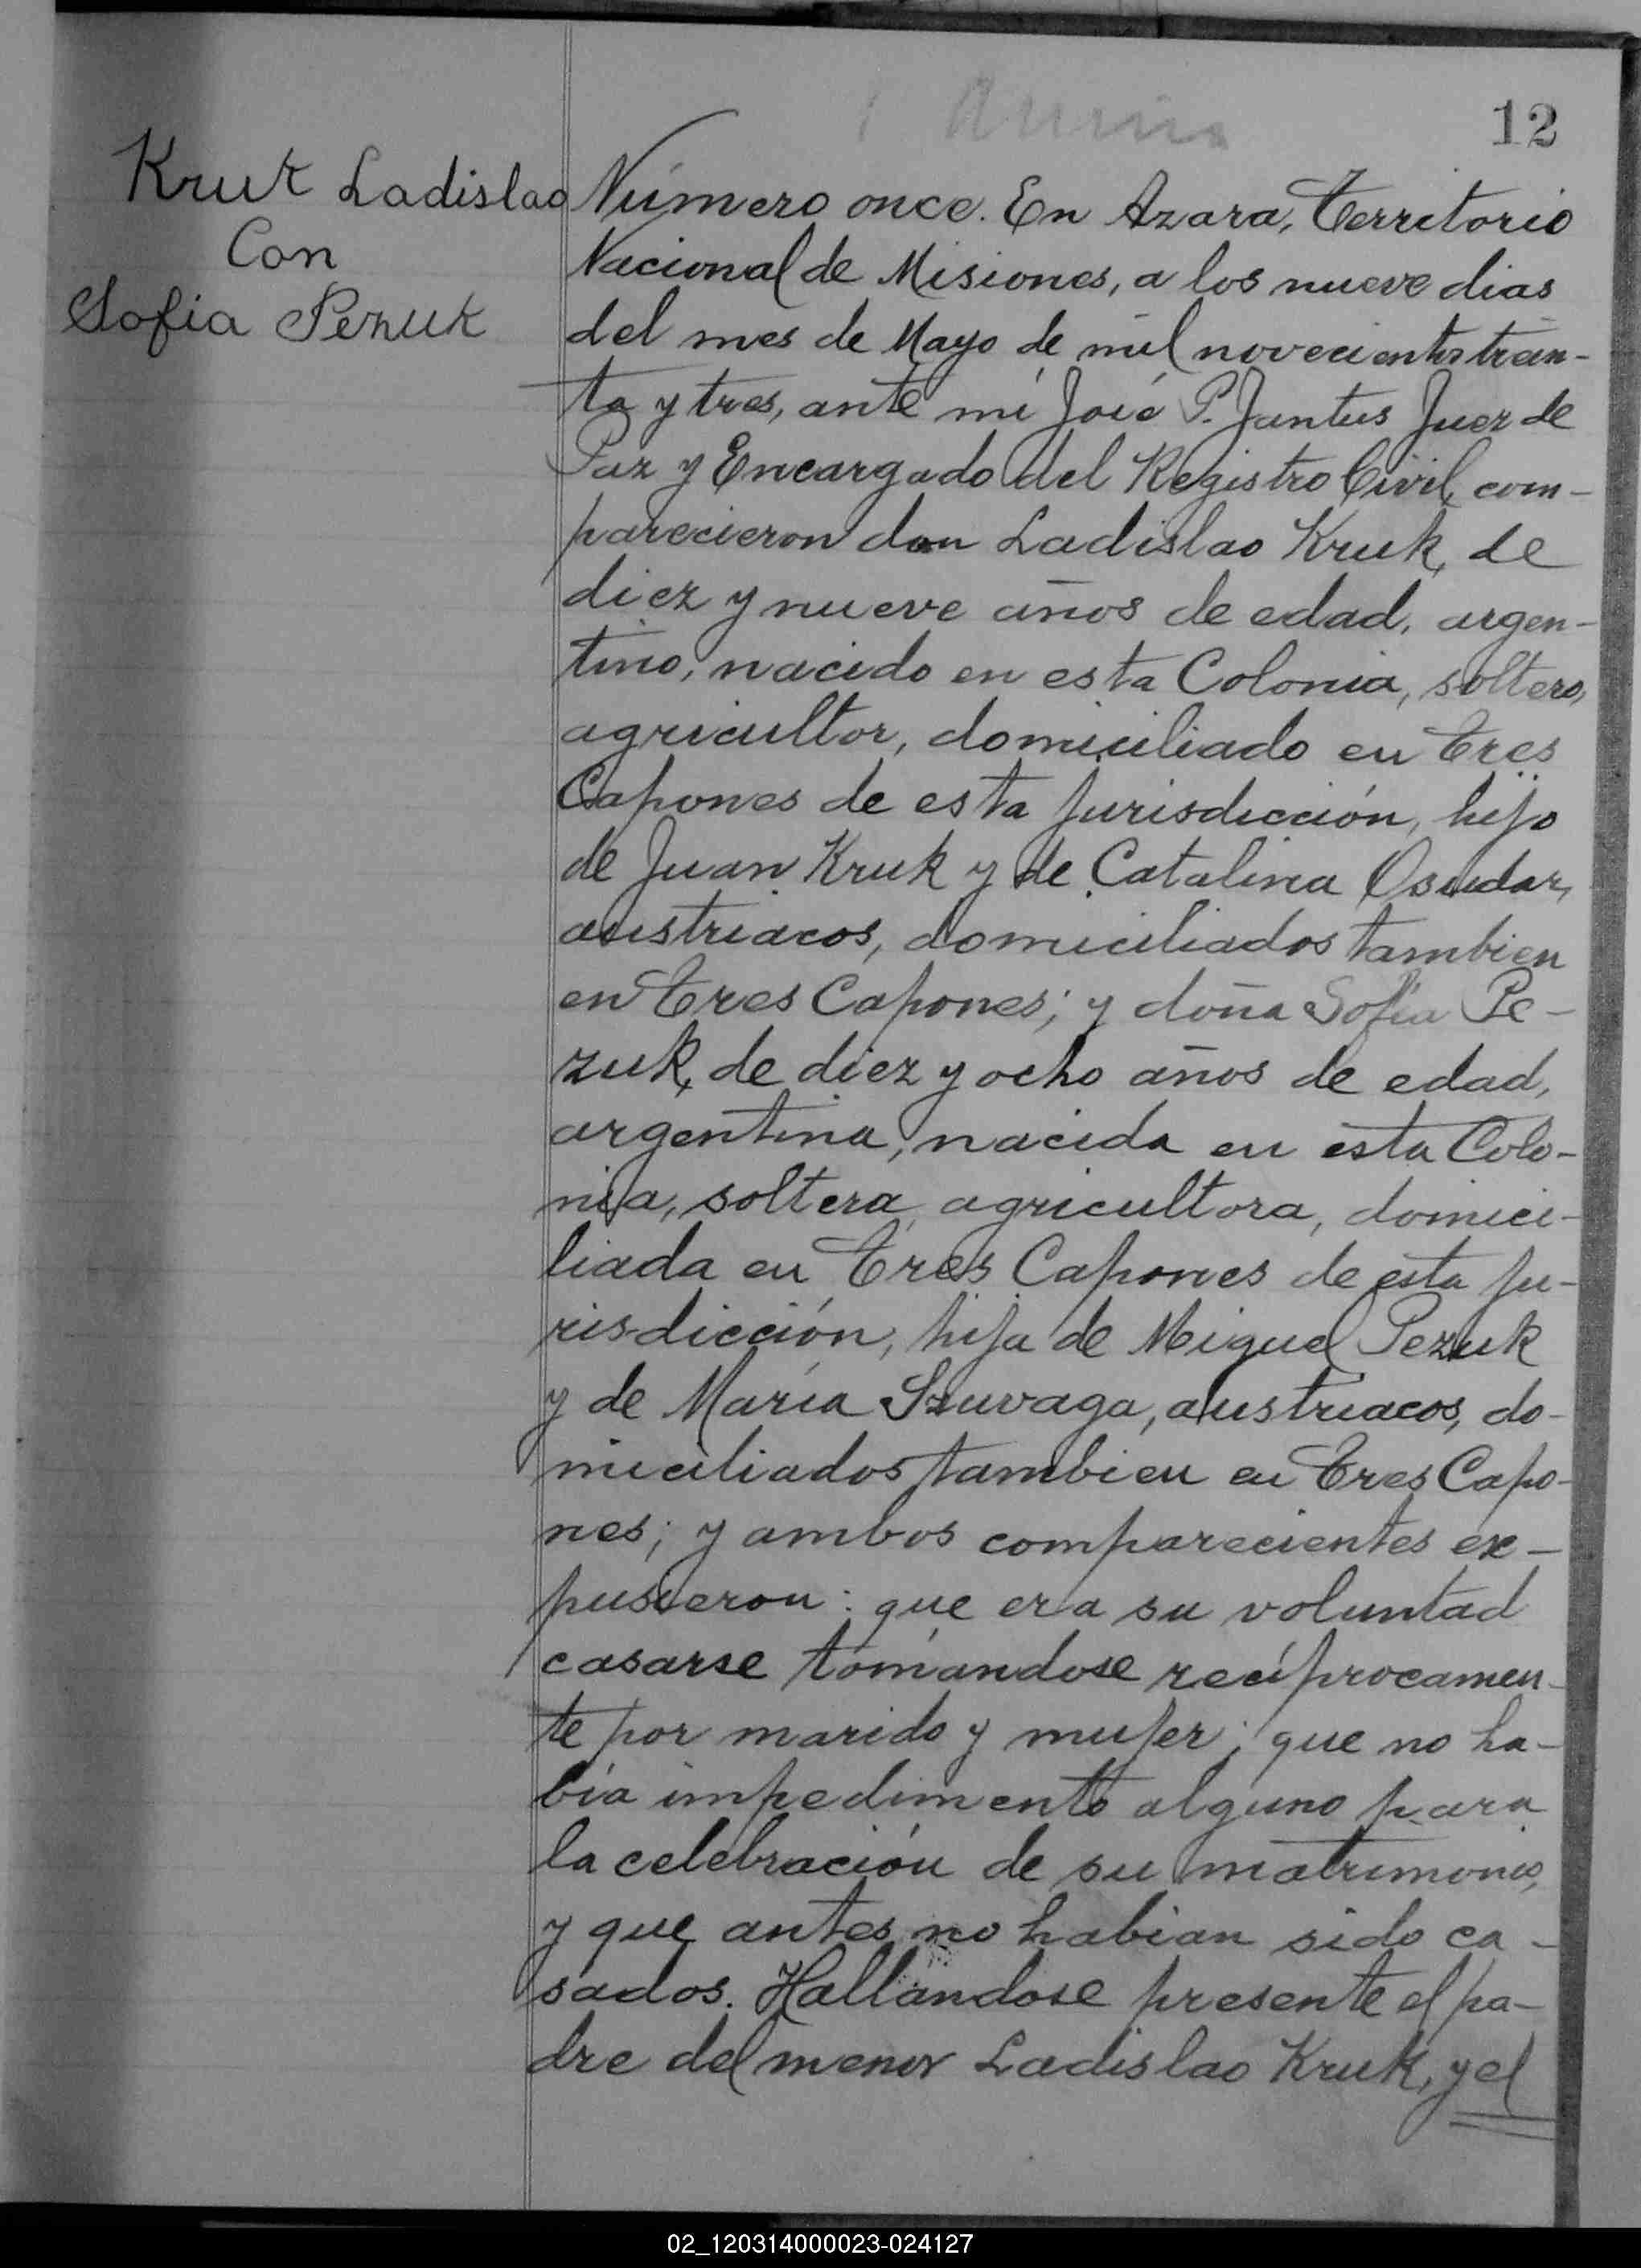 12
Kruk Ladislao
Con
Sofia Pezuk
Número once. En Azara, Territorio
Nacional de Misiones, a los nueve dias
del mes de Mayo de mil novecientos trein-
ta y tres, ante mi José P. Jantus Juez de
Paz y Encargado del Registro Civil, com-
parecieron don Ladislao Kruk, de
diez y nueve años de edad, argen-
tino, nacido en esta Colonia, soltero,
agricultor, domiciliado en Tres
Capones de esta jurisdicción, hijo
de Juan Kruk y de Catalina Osudar,
austriacos, domiciliados tambien
en Tres Capones; y doña Sofía Pe-
zuk, de diez y ocho años de edad,
argentina, nacida en esta Colo-
nia, soltera, agricultora, domici-
liada en Tres Capones de esta ju-
risdicción, hija de Miguel Pezuk
y de María Szuvaga, austriacos, do-
miciliados tambien en Tres Capo-
nes; y ambos comparecientes ex-
pusieron: que era su voluntad
casarse tomándose recíprocamen-
te por marido y mujer; que no ha-
bía impedimento alguno para
la celebración de su matrimonio,
y que antes no habian sido ca-
sados. Hallandose presente el pa-
dre del menor Ladislao Kruk, y el
02_120314000023-024127